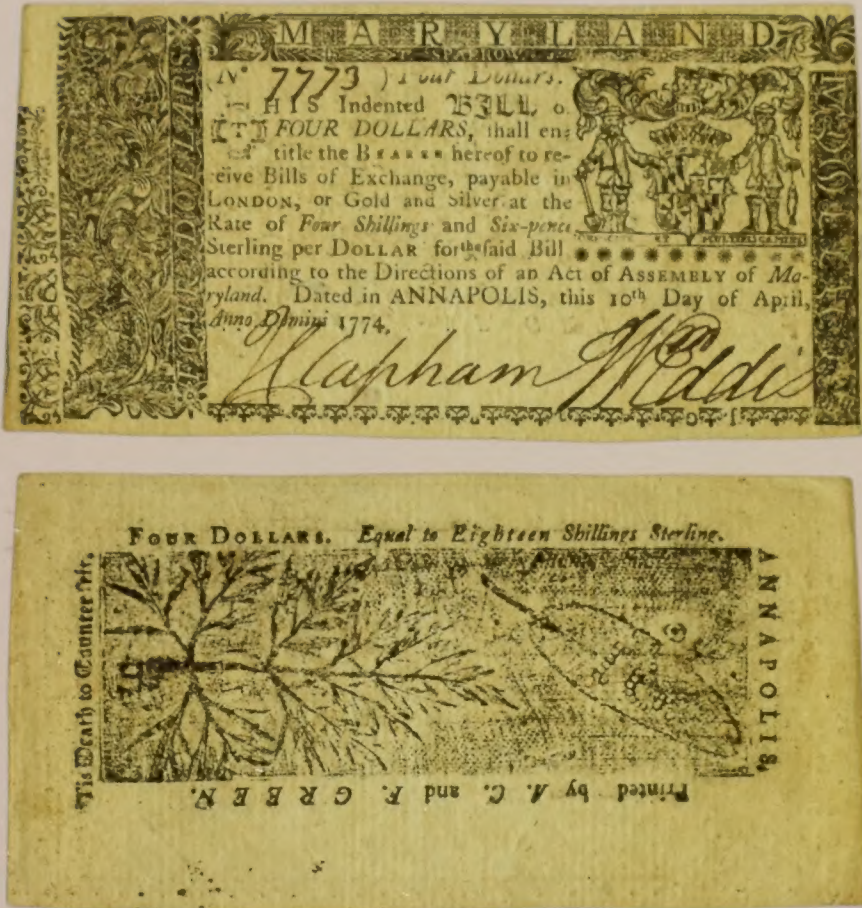 MARYLAND
FOUR DOLLARS
FOUR DOLLARS
(N° 7773 ) Four Dollars.
THIS Indented BILL of
FOUR DOLLARS, shall en=
title the BEARER hereof to re-
ceive Bills of Exchange, payable in
LONDON, or Gold and Silver at the
Rate of Four Shillings and Six-pence
Sterling per DOLLAR for the said Bill
according to the Directions of an Act of ASSEMBLY of Ma-
ryland. Dated in ANNAPOLIS, this 10th Day of April,
Anno Domini 1774.
CRESCITE ET MULTIPLICAMINI
J Clapham W Eddis
FOUR DOLLARS. Equal to Eighteen Shillings Sterling.
ANNAPOLIS,
Printed by A. C. and F. GREEN.
'Tis Death to Counterfeit.